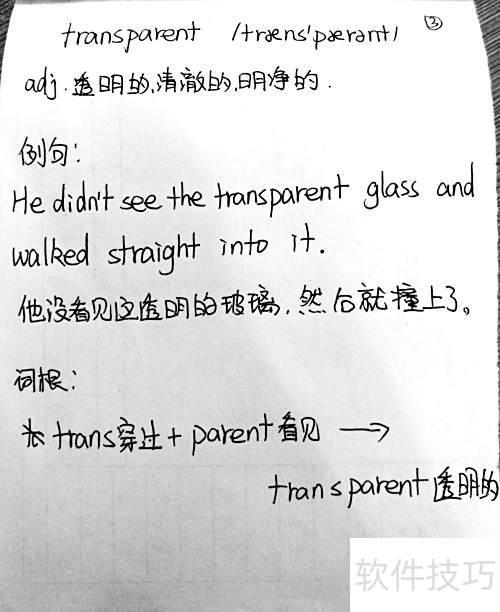 transparent /træns'pærənt/ ③
adj. 透明的,清澈的,明净的.
例句:
He didn't see the transparent glass and
walked straight into it.
他没看见这透明的玻璃,然后就撞上了。
词根:
trans穿过+parent看见 →
transparent透明的
软件技巧